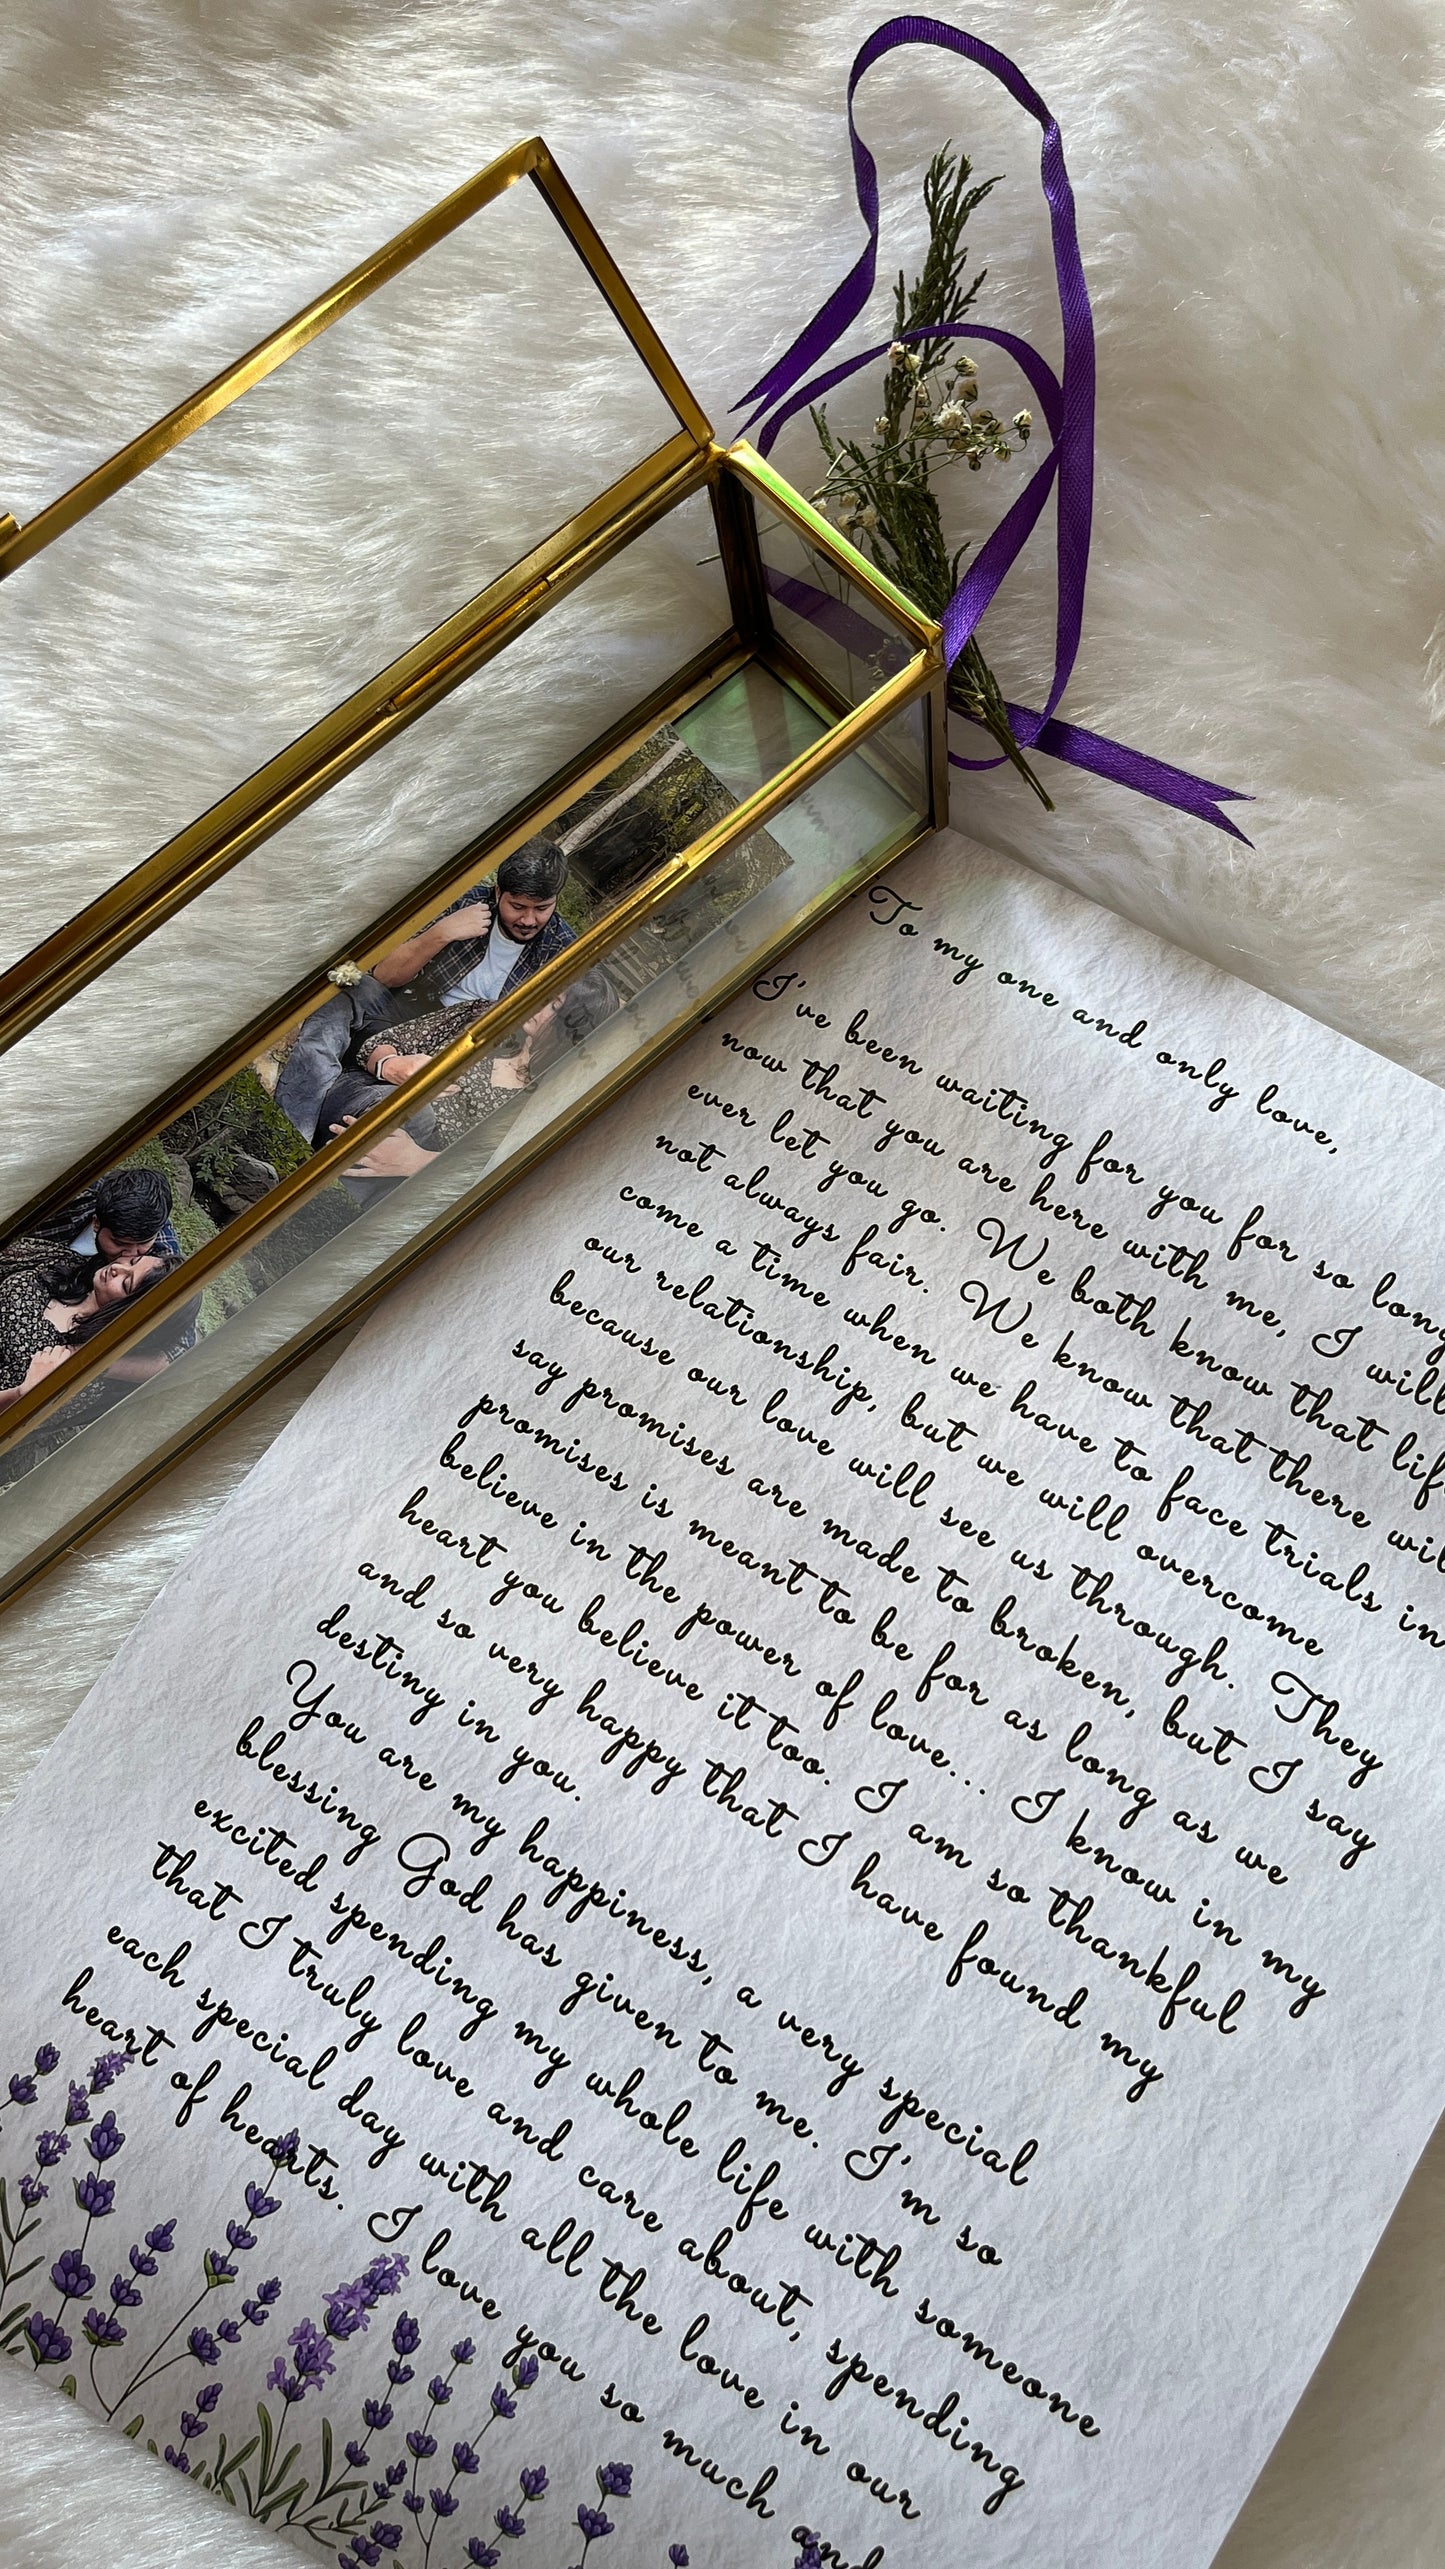 To my one and only love,
I've been waiting for you for so long
now that you are here with me, I will
ever let you go. We both know that life
not always fair. We know that there will
come a time when we have to face trials in
our relationship, but we will overcome
because our love will see us through. They
say promises are made to broken, but I say
promises is meant to be for as long as we
believe in the power of love... I know in my
heart you believe it too. I am so thankful
and so very happy that I have found my
destiny in you.
You are my happiness, a very special
blessing God has given to me. I'm so
excited spending my whole life with someone
that I truly love and care about, spending
each special day with all the love in our
heart of hearts. I love you so much and